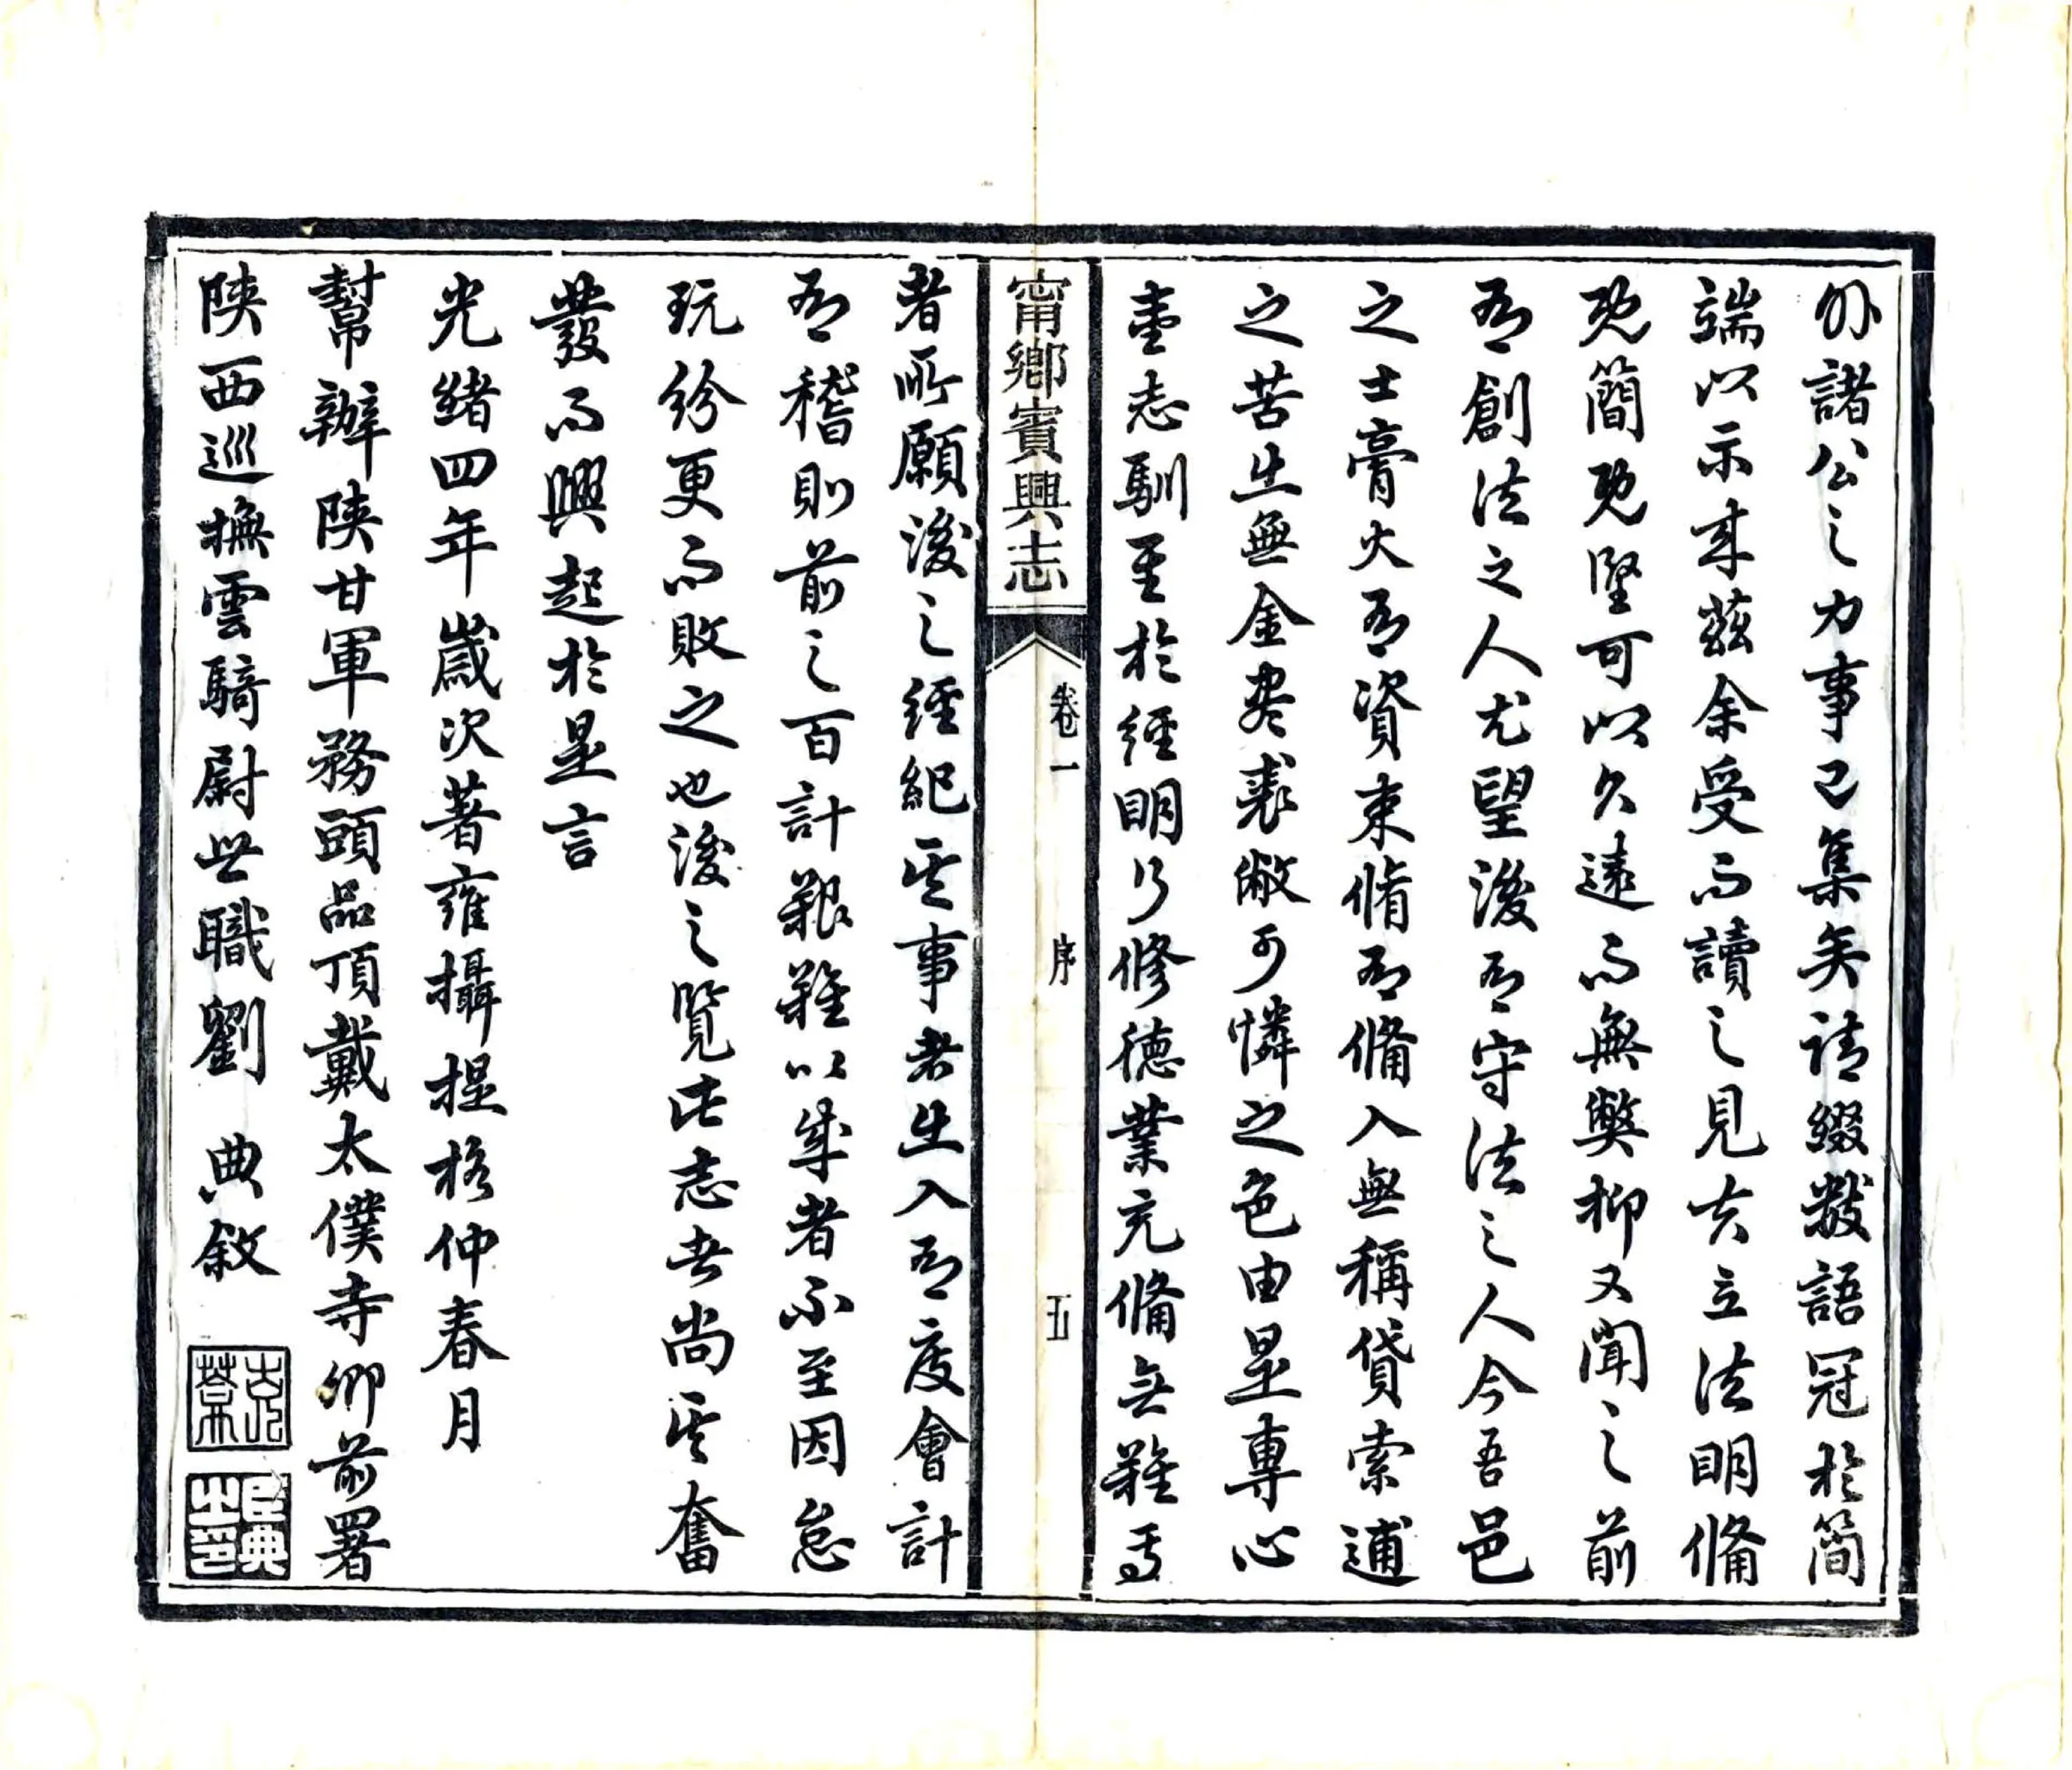 外諸公之力事已集矣請綴數語冠於簡
端以示來茲余受而讀之見其立法明備
既簡既堅可以久遠而無弊抑又聞之前
有創法之人尤望後有守法之人今吾邑
之士膏火有資束脩有備入無稱貸索逋
之苦出無金盡裘敝可憐之色由是專心
壹志馴至於經明行修德業充備無難焉
甯鄉賓興志
卷一
序
五
者所願後之經紀其事者出入有度會計
有稽則前之百計艱難以成者不至因怠
玩紛更而敗之也後之覽此志者尚其奮
發而興起於是言
光緒四年歲次著雍攝提格仲春月
幫辦陝甘軍務頭品頂戴太僕寺卿前署
陝西巡撫雲騎尉世職劉 典敘
克菴
臣典之印